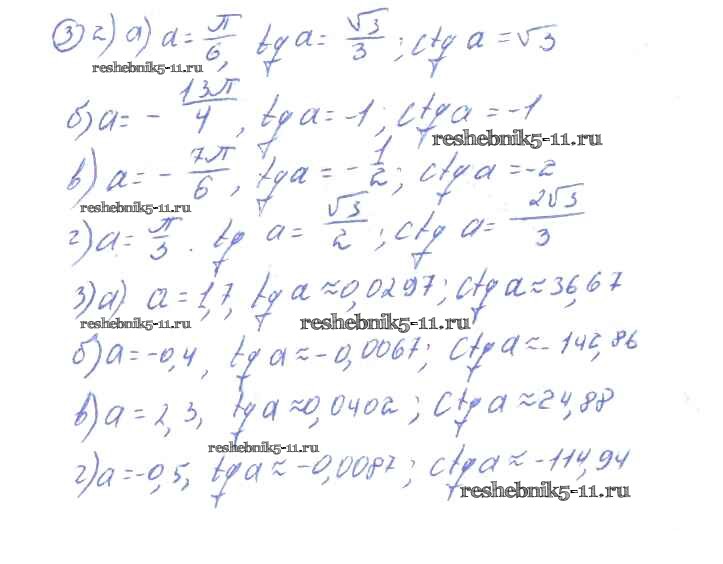 ③ 2) а) a = π/6, tg a = √3/3; ctg a = √3
reshebnik5-11.ru
б) a = - 13π/4, tg a = -1; ctg a = -1
reshebnik5-11.ru
в) a = - 7π/6, tg a = - 1/2; ctg a = -2
reshebnik5-11.ru
г) a = π/3. tg a = √3/2; ctg a = 2√3/3
3) а) a = 1,7, tg a ≈ 0,0297; ctg a ≈ 36,67
reshebnik5-11.ru reshebnik5-11.ru
б) a = -0,4, tg a ≈ -0,0067; ctg a ≈ -142,86
в) a = 2,3, tg a ≈ 0,0402; ctg a ≈ 24,88
reshebnik5-11.ru
г) a = -0,5, tg a ≈ -0,0087; ctg a ≈ -114,94
reshebnik5-11.ru